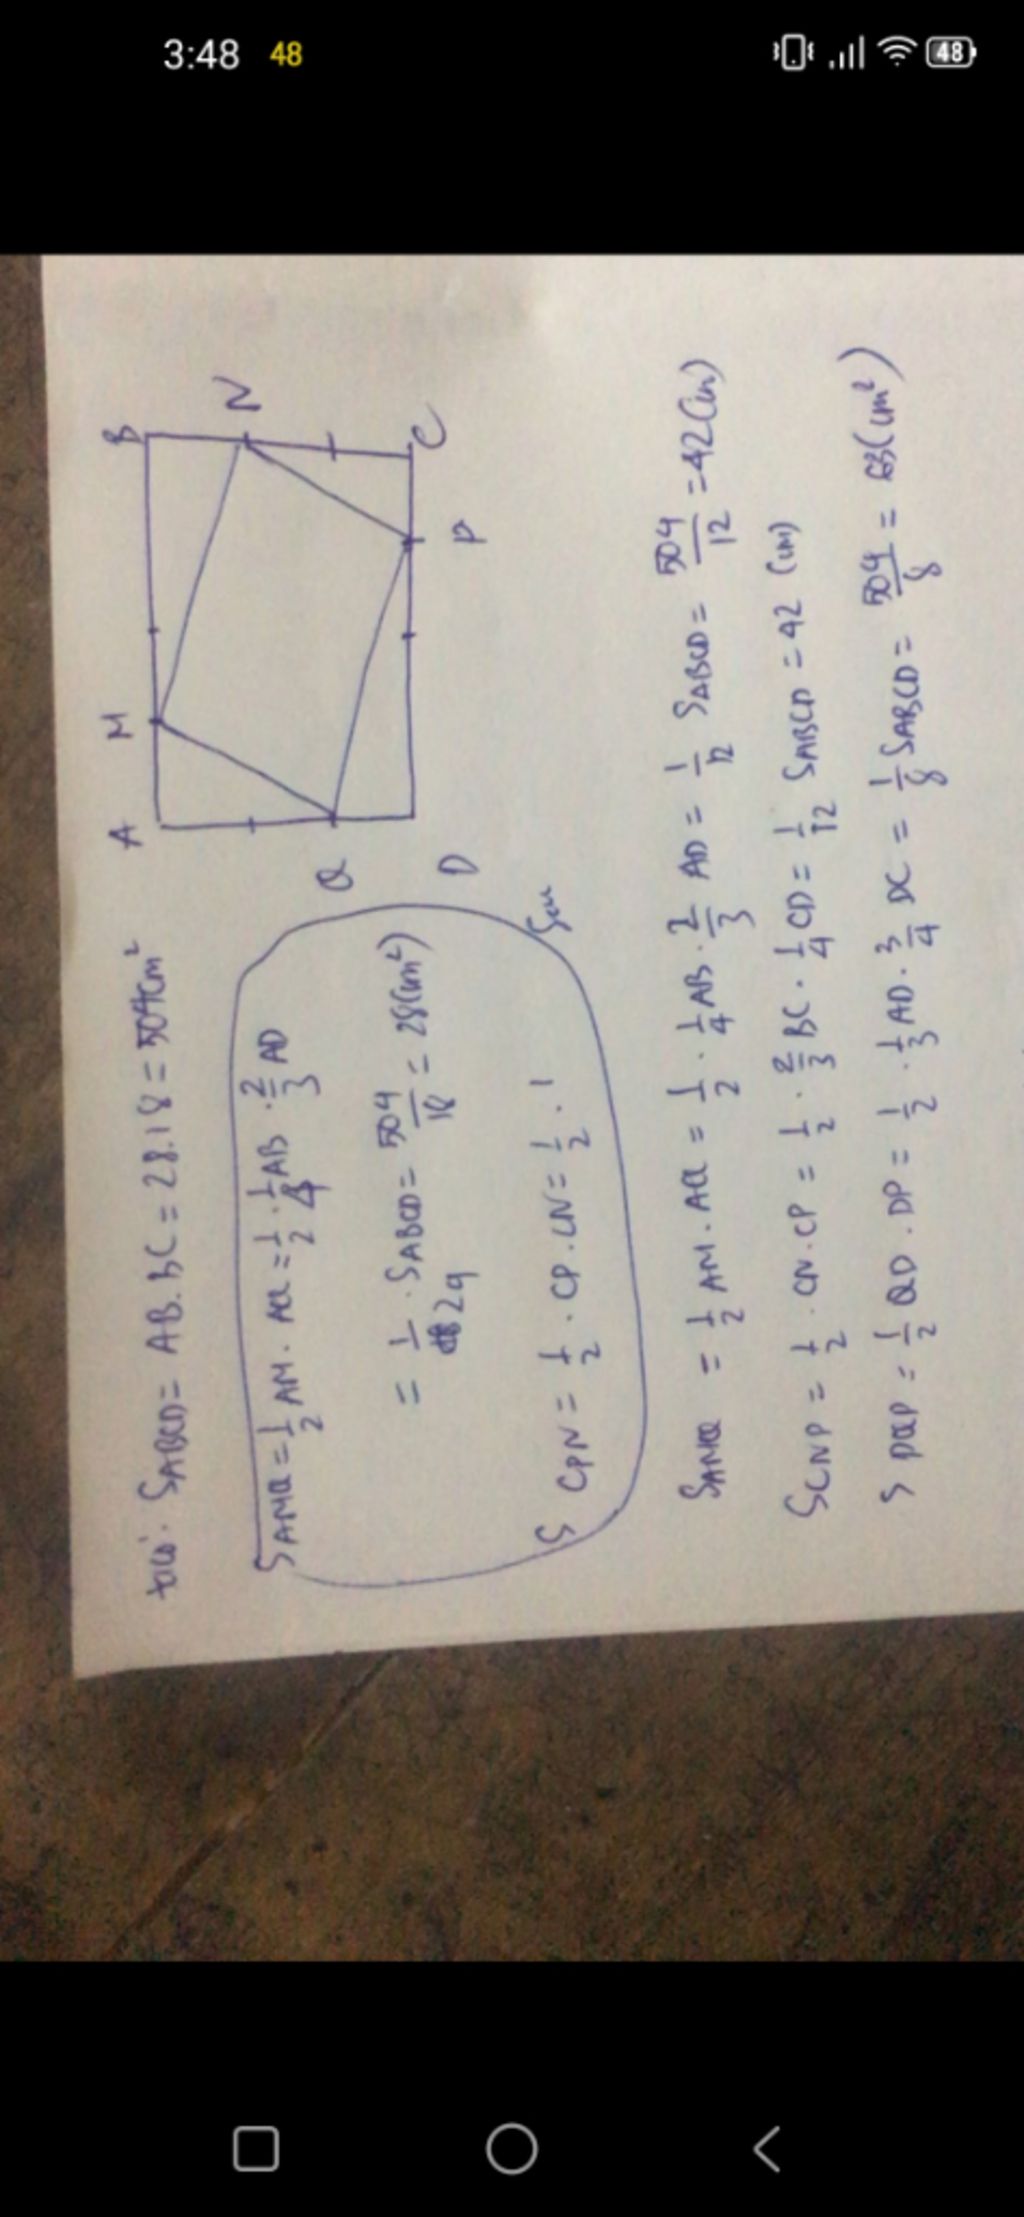 3:48 48 48
A M B
N
Q
D P C
SABCD = AB.BC = 28.18 = 504cm²
SAMQ = 1/2 AM . AQ = 1/2 . 1/4 AB . 2/3 AD
= 1/ . SABCD = 504/18 = 28(cm²)
S CPN = 1/2 . CP . CN = 1/2 . 1
SAMQ = 1/2 AM . AQ = 1/2 . 1/4 AB . 2/3 AD = 1/12 SABCD = 504/12 = 42 (cm)
SCNP = 1/2 . CN . CP = 1/2 . 2/3 BC . 1/4 CD = 1/12 SABCD = 42 (cm)
S DQP = 1/2 QD . DP = 1/2 . 1/3 AD . 3/4 DC = 1/8 SABCD = 504/8 = 63(cm²)